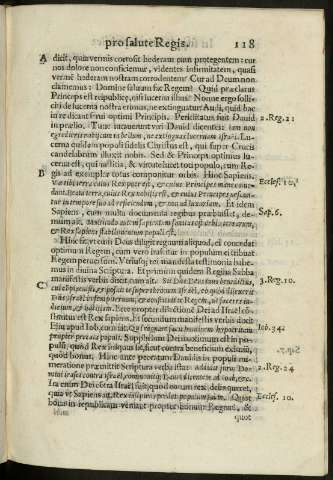 pro salute Regis. 118
A dicit, quia vermis corrosit hederam eum protegentem: cur
nos dolore non conficiemur, videntes infirmitatem, quasi
vermē hederam nostram corrodentem? Cur ad Deum non
clamemus: Domine saluum fac Regem? Quid præclarus
Princeps est reipublicę, nisi lucerna illius? Nonne ergo solli-
citi de lucerna nostra erimus, ne extinguatur? Audi, quid hac
in re dicant serui optimi Principis. Periclitatus fuit Dauid
in prælio. Tunc iurauerunt viri Dauid dicentes: iam non 2. Reg. 21
egredieris nobiscum in bellum, ne extinguas lucernam Israël. Lu-
cerna quidem populi fidelis Christus est, qui super Crucis
candelabrum illuxit orbi. Sed & Princeps optimus lu-
cerna est, qui iustitia, & virtute lucet toti populo, cum Re-
gis ad exemplar totus componatur orbis. Hinc Sapiens.
B Væ tibi terra, cuius Rex puer est, & cuius Principes mane come- Eccles. 10.
dunt. beata terra, cuius Rex nobilis est, & cuius Principes vescun-
tur in tempore suo ad reficiendum, & non ad luxuriam. Et idem
Sapiens, cum multa documenta regibus præbuisset, de- Sap. 6.
mum ait,
& Rex sapiens stabilimentum populi est.
Hinc fit, vt cum Deus diligit regnum aliquod, ei concedat
optimum Regem, cum vero irascitur in populum et tribuat
Regem peruersum. Vtriusq; rei manifesta testimonia habe-
mus in diuina Scriptura. Et primum quidem Regina Sabba
manifestis verbis dicit, cum ait. Sit Dns Deus tuus benedictus, 3. Reg. 10.
C cui cōplacuisti, & posuit te super thronum Israël, eo quod dilexerit
Dns Israël in sempiternum, & constituit te Regem, vt faceres iu-
dicium, & iustitiam. Ecce propter dilectionē Dei ad Israël cō-
stitutus est Rex sapiens. Et secundum manifestis verbis docet
Eius apud Iob, cum ait. Qui regnare facit hominem hypocritam Iob. 34.
propter peccata populi. Supplicium Dei maximum est in po-
pulū, quādo Rex iniquus sit, sicut contra beneficium eximiū,
quod bonus. Hinc ante peccatum Dauidis in populi nu-
meratione præmittit Scriptura verba ista: addidit furor Do- 2. Reg. 24
mini irasci contra Israël, commouitq; Dauid dicentem ad Ioab, &c.
Ira enim Dei cōtra Israël fuit, quod eorum rex delinqueret,
quia vt Sapiens ait, Rex insipiens perdet populum suum. Quot Eccles. 10.
bona in rempublicam veniant propter bonum Regem, &
quot